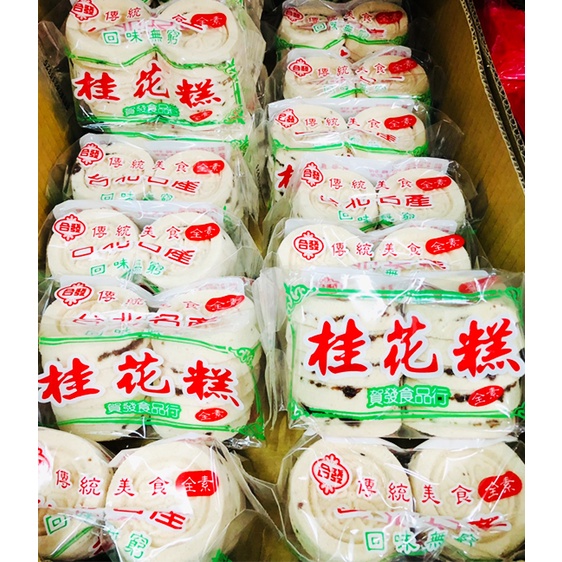 全素
回味無窮
桂花糕
傳統美食
回味無窮
合發 傳統美食 全素
合發 傳統美食 全素
合發 傳統美食 全素
台北名產
回味無窮
合發 傳統美食 全素
台北名產
回味無窮
合發 傳統美食 全素
名產
回味無窮
合發 傳統美食 全素
合發 傳統美食 全素
台北名產
桂花糕
賀發食品行 全素
桂花糕
賀發食品行 全素
合發 傳統美食 全素
回味無窮
合發 傳統美食 全素
回味無窮